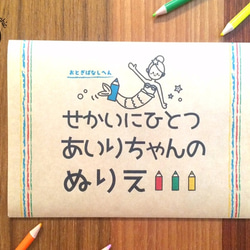 おとぎばなしへん
せかいにひとつ
あいりちゃんの
ぬりえ